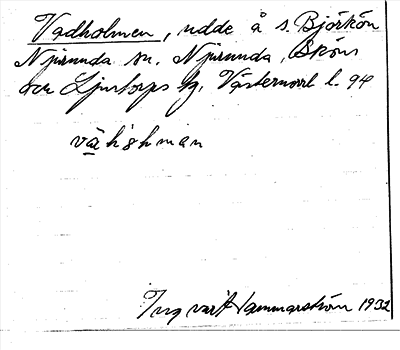 Vadholmen, udde å s. Björkön
Njurunda sn. Njurunda, Sköns
och Ljustorps tg. Västernorrl l. 94
vä h s h m a n
Ingvar Hammarström 1932